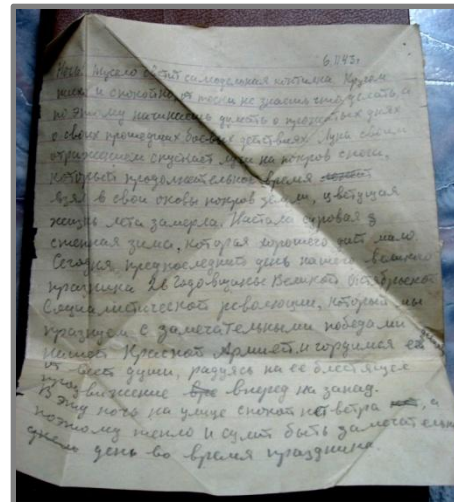 6.11.43г.
Ночь. Тускло светит самодельная коптилка. Кругом
тихо и спокойно, от тоски не знаешь что делать, а
поэтому начинаешь думать о прожитых днях
о своих прошедших боевых действиях. Луна своим
отражением спускает лучи на покров снега,
который продолжительное время
взял в свои оковы покров земли, цветущая
жизнь лета замерла. Настала суровая
снежная зима, которая хорошего мало
Сегодня, предпоследний день нашего великого
праздника 26 годовщины Великой Октябрьской
Социалистической революции, который мы
празднуем с замечательными победами
нашей Красной Армией, и гордимся ей
от всей души, радуясь на ее блестящее
продвижение вперед на запад.
В эту ночь на улице спокой нет ветра, а
поэтому тепло и сулит быть замечательн
день во время праздника